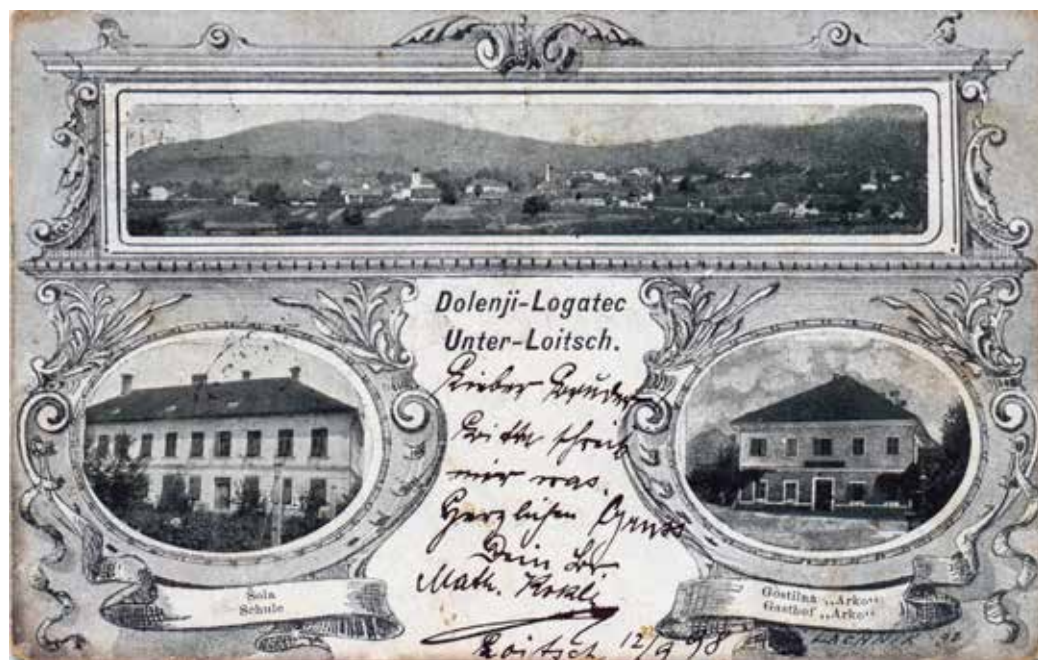 Dolenji-Logatec
Unter-Loitsch.
Lieber Bruder
Bitte schreib
mir was.
Herzlichen Gruss
Dein
Math.
Loitsch 12/9 98
Šola
Schule
Gostilna „Arko“
Gasthof „Arko“
LACHNIK 98